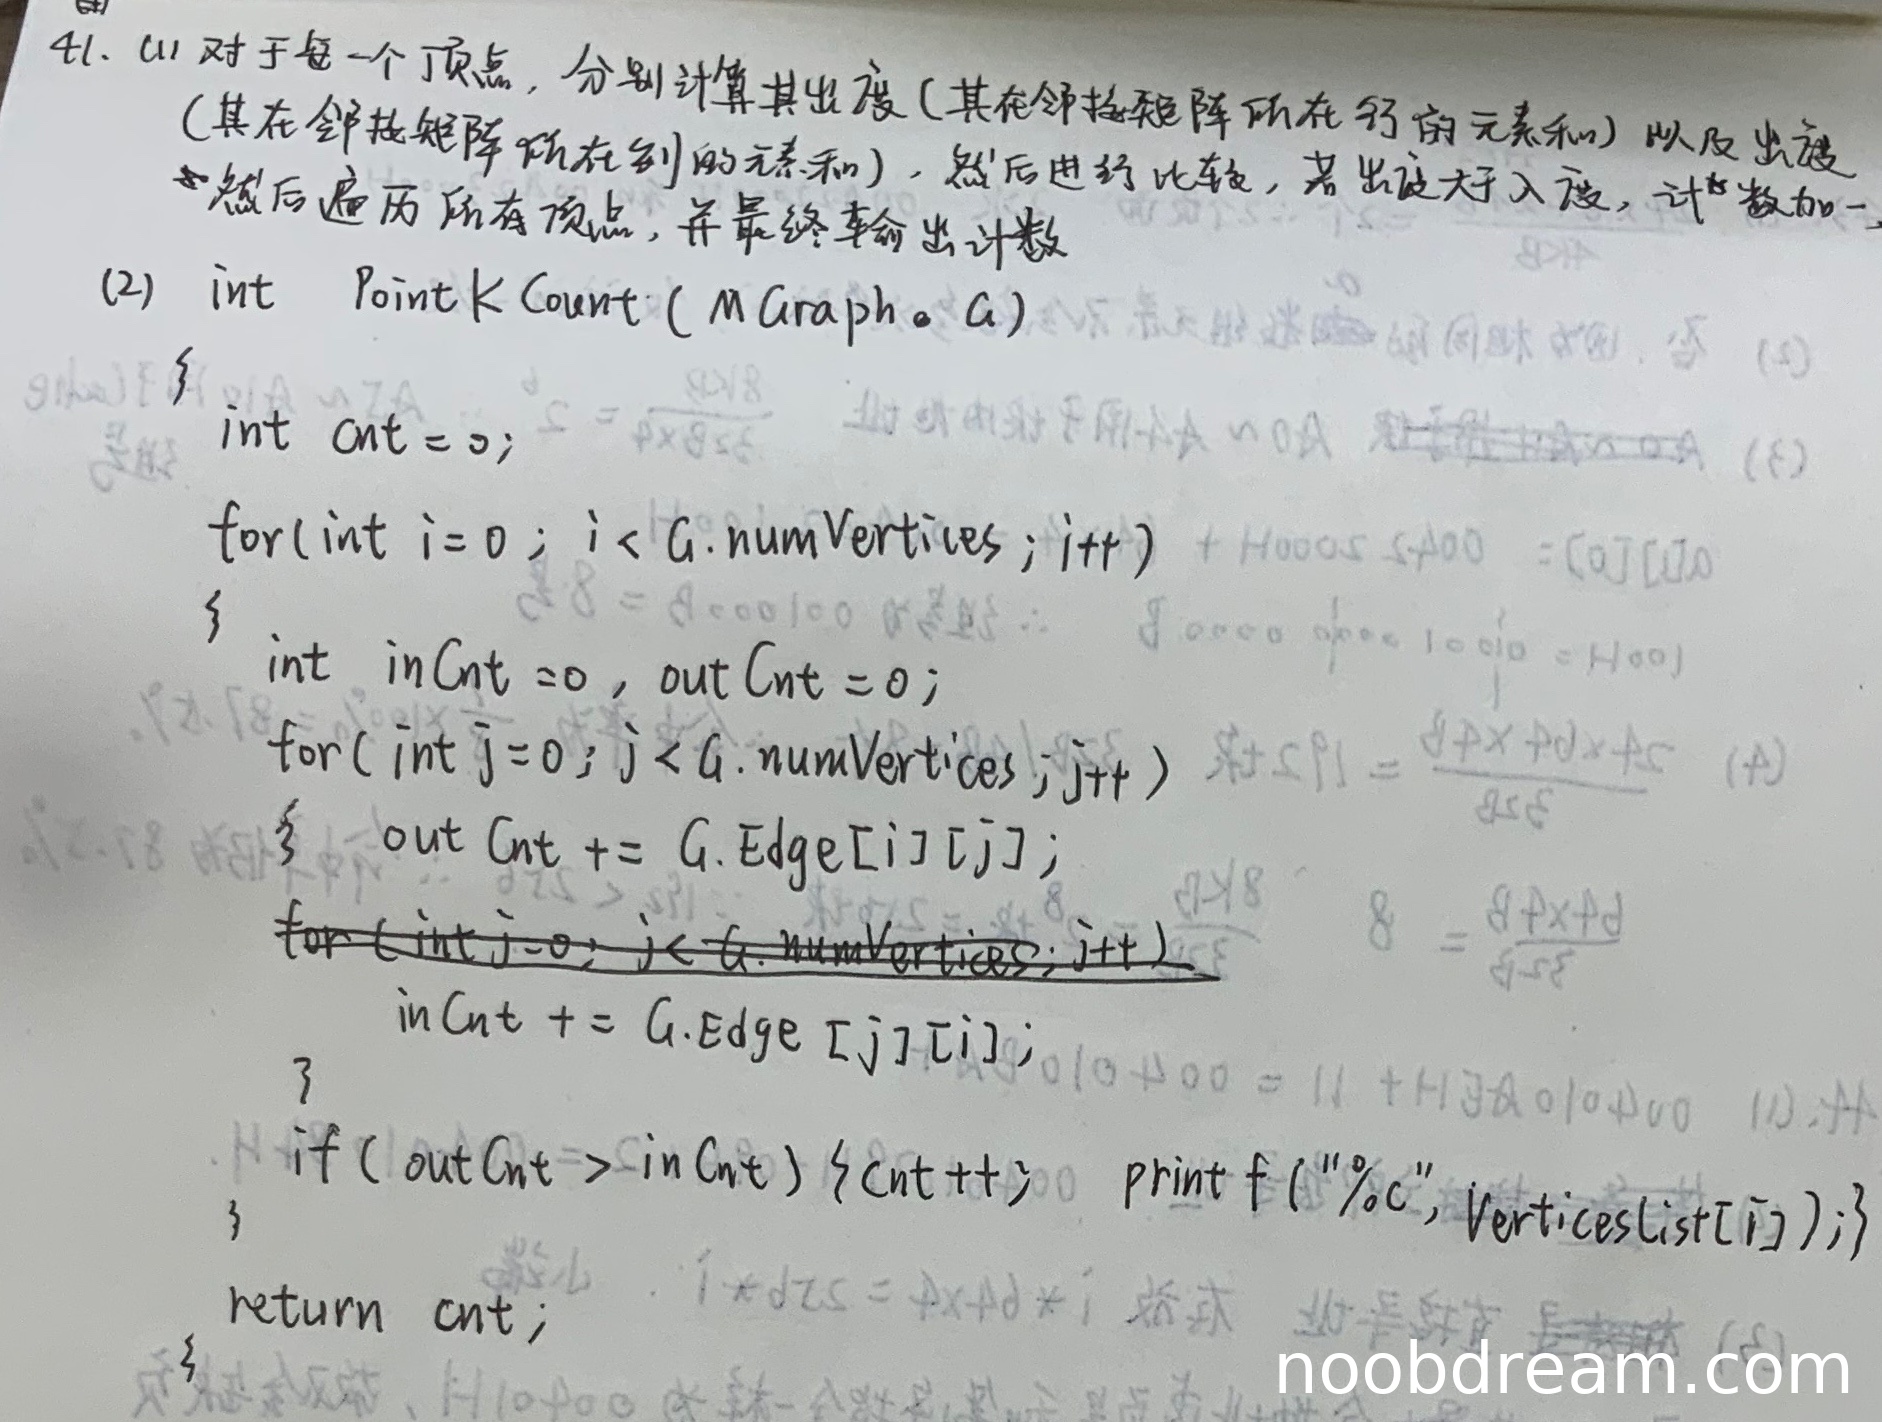 41. (1) 对于每一个顶点, 分别计算其出度(其在邻接矩阵所在行的元素和)以及出度
(其在邻接矩阵所在列的元素和), 然后进行比较, 若出度大于入度, 计数加一,
然后遍历所有顶点, 并最终输出计数
(2) int PointKCount(MGraph G)
{
int cnt=0;
for(int i=0; i<G.numVertices; i++)
{
int inCnt=0, outCnt=0;
for(int j=0; j<G.numVertices; j++)
{ outCnt += G.Edge[i][j];
for(int j=0; j<G.numVertices; j++)
inCnt += G.Edge[j][i];
}
if(outCnt>inCnt){cnt++; printf("%c", VerticesList[i]);}
}
return cnt;
}
noobdream.com